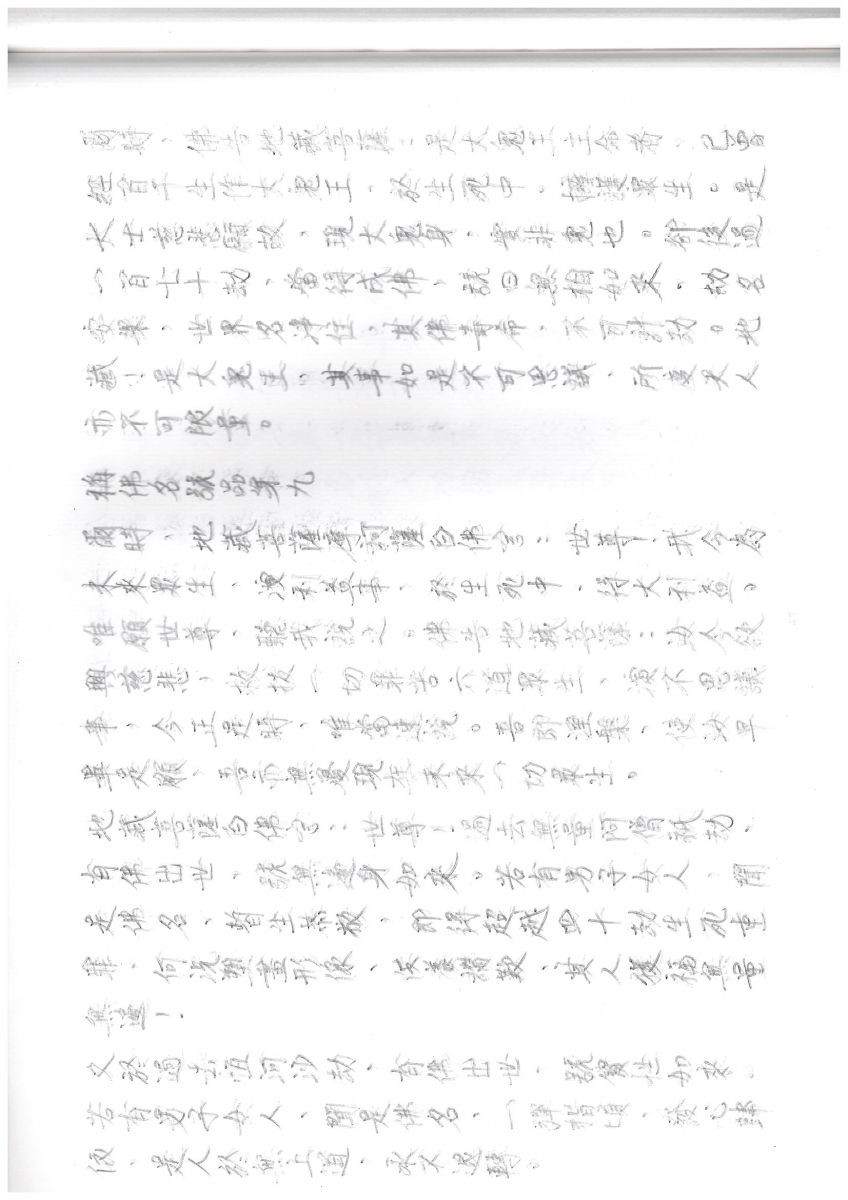 爾時、佛告地藏菩薩：是大鬼王主命者、已曾
經百千生作大鬼王、於生死中、擁護眾生。是
大士慈悲願故、現大鬼身、實非鬼也。卻後過
一百七十劫、當得成佛、號曰無相如來、劫名
安樂、世界名淨住、其佛壽命、不可計劫。地
藏！是大鬼王、其事如是不可思議、所度天人
亦不可限量。
稱佛名號品第九
爾時、地藏菩薩摩訶薩白佛言：世尊！我今為
未來眾生、演利益事、於生死中、得大利益。
唯願世尊、聽我說之。佛告地藏菩薩：汝今欲
興慈悲、救拔一切罪苦六道眾生、演不思議
事、今正是時、唯當速說。吾即涅槃、使汝早
畢是願、吾亦無憂現在未來一切眾生。
地藏菩薩白佛言：世尊！過去無量阿僧祇劫、
有佛出世、號無邊身如來。若有男子女人、聞
是佛名、暫生恭敬、即得超越四十劫生死重
罪、何況塑畫形像、供養讚歎、其人獲福無量
無邊！
又於過去恆河沙劫、有佛出世、號寶性如來。
若有男子女人、聞是佛名、一彈指頃、發心歸
依、是人於無上道、永不退轉。